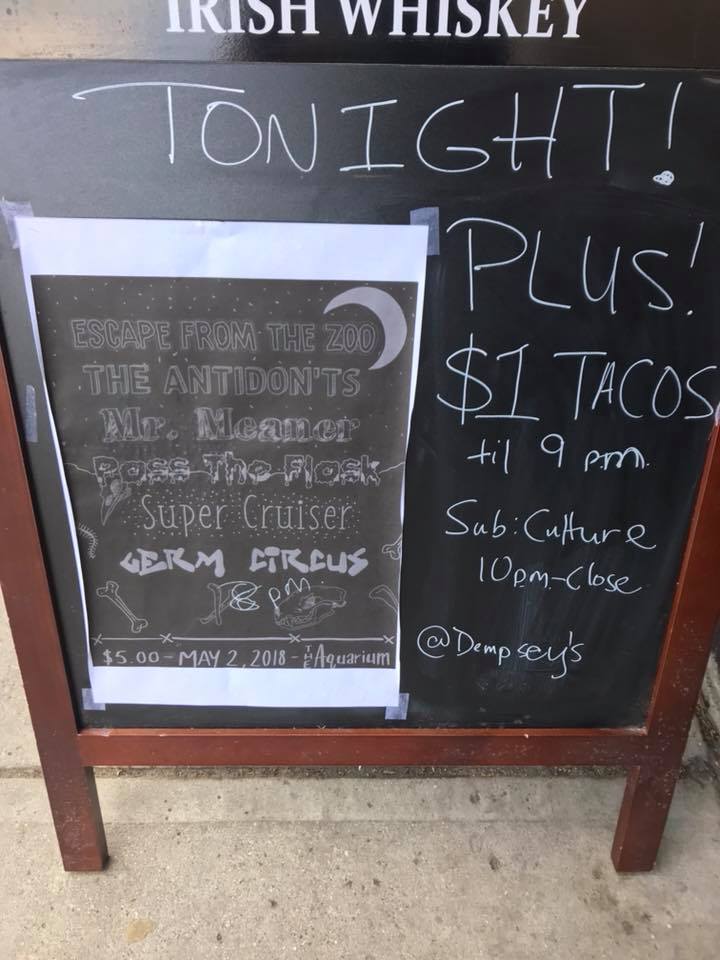 IRISH WHISKEY
TONIGHT!
ESCAPE FROM THE ZOO
THE ANTIDON'TS
Mr. Meaner
Pass The Flask
Super Cruiser
GERM CIRCUS
8 pm
$5.00 - MAY 2, 2018 - THE Aquarium
PLUS!
$1 TACOS
til 9 pm.
Sub:Culture
10pm-Close
@Dempsey's